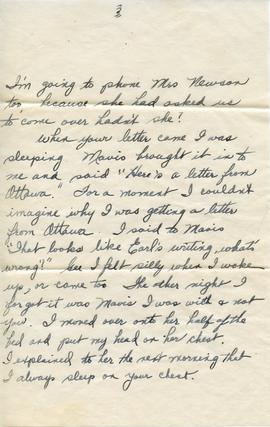 3
I'm going to phone Mrs Newson
too, because she had asked us
to come over hadn't she?
When your letter came I was
sleeping. Mavis brought it in to
me and said "Here's a letter from
Ottawa." For a moment I couldn't
imagine why I was getting a letter
from Ottawa. I said to Mavis
"That looks like Earl's writing, what's
wrong?" Gee I felt silly when I woke
up, or came too. The other night I
forgot it was Mavis I was with & not
you. I moved over onto her half of the
bed and put my head on her chest.
I explained to her the next morning that
I always sleep on your chest.